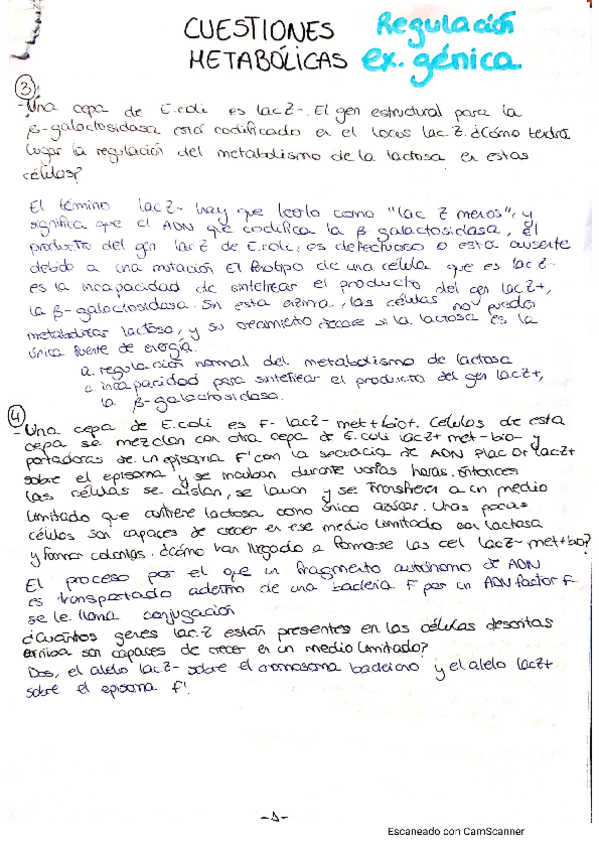 CUESTIONES Regulación
METABÓLICAS ex. génica
3
- Una cepa de E.coli es lacZ-. El gen estructural para la
β-galactosidasa está codificado en el locus lac Z. ¿Cómo tendrá
lugar la regulación del metabolismo de la lactosa en estas
células?
El término lacZ- hay que leerlo como "lac Z menos", y
significa que el ADN que codifica la β galactosidasa, el
producto del gen lacZ de E.coli, es defectuoso o está ausente
debido a una mutación El fenotipo de una célula que es lacZ-
es la incapacidad de sintetizar el producto del gen lacZ+,
la β-galactosidasa. Sin esta enzima, las células no pueden
metabolizar lactosa, y su crecimiento decae si la lactosa es la
única fuente de energía.
a. regulación normal del metabolismo de lactosa
c incapacidad para sintetizar el producto del gen lacZ+,
la β-galactosidasa.
4
- Una cepa de E.coli es F- lacZ- met+biot. Células de esta
cepa se mezclan con otra cepa de E.coli lacZ+ met-bio- y
portadoras de un episoma F' con la secuencia de ADN Plac O+ lacZ+
sobre el episoma y se incuban durante varias horas. Entonces
las células se aíslan, se lavan y se transfieren a un medio
limitado que contiene lactosa como único azúcar. Unas pocas
células son capaces de crecer en ese medio limitado con lactosa
y formar colonias. ¿cómo han llegado a formarse las cel lacZ- met+bio?
El proceso por el que un fragmento autónomo de ADN
es transportado adentro de una bacteria F por un ADN factor F-
se le llama conjugación
¿Cuántos genes lac.Z están presentes en las células descritas
son capaces de crecer en un medio limitado?
Dos, el alelo lacZ- sobre el cromosoma bacteriano y el alelo lacZ+
sobre el episoma F'.
-1-
Escaneado con CamScanner